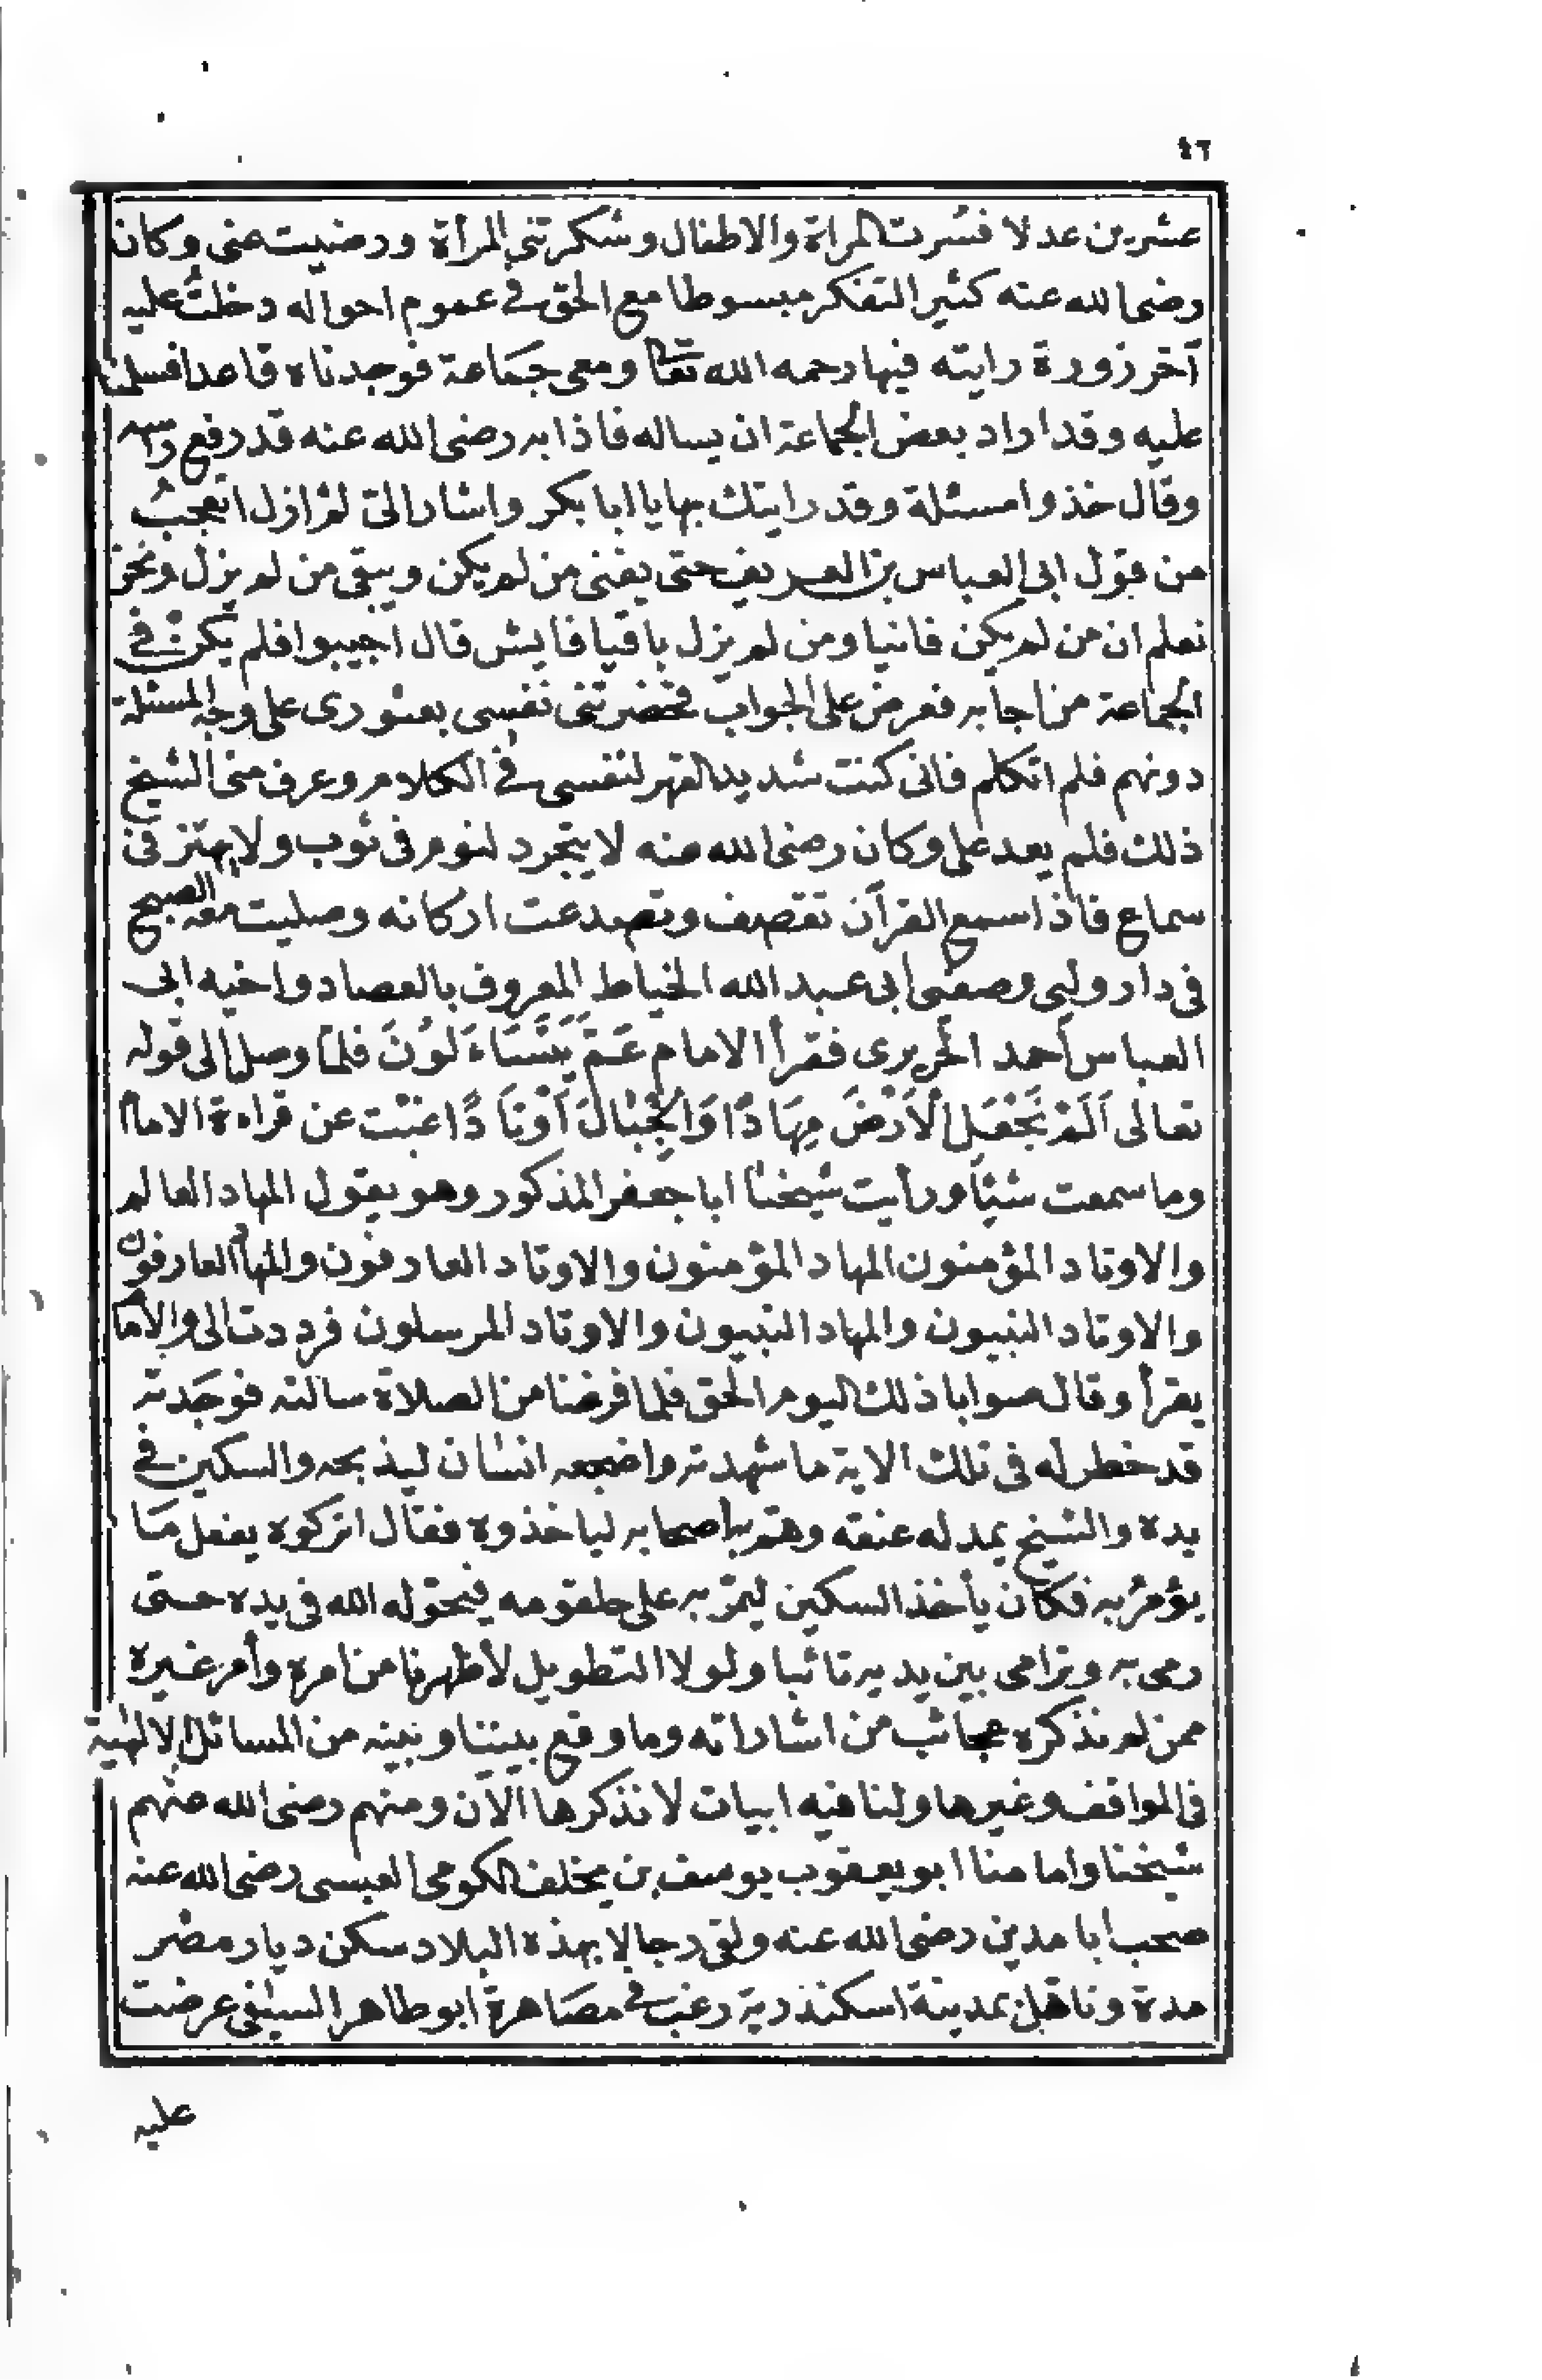 ٤٦
عشرين عدلا فسرت المراة والاطفال وشكرتنى المرأة ورضيت عنى وكان
رضى الله عنه كثير التفكر مبسوطا مع الحق فى عموم احواله دخلتُ عليه
آخر زورة رايته فيها رحمه الله تعالى ومعى جماعة فوجدناه قاعدا فسلمنا
عليه وقد اراد بعض الجماعة ان يساله فاذا به رضى الله عنه قد رفع راسه
وقال خذوا مسئلة وقد رايتك بها يا ابا بكر واشار الىّ لم ازل اتعجبُ
من قول ابى العباس بن العريف حتى يفنى من لم يكن ويبقى من لم يزل ونحن
نعلم ان من لم يكن فانيا ومن لم يزل باقيا فايش قال اجيبوا فلم يكن فى
الجماعة من اجابه فعرض على الجواب فحضرتنى نفسى بعثورى على وجه المسئلة
دونهم فلم اتكلم فانى كنت شديد القهر لنفسى فى الكلام وعرف منى الشيخ
ذلك فلم يعد على وكان رضى الله عنه لا يتجرد لنوم فى ثوب ولا يهتز فى
سماع فاذا سمع القرآن تقصف وتصدعت اركانه وصليت معه الصبح
فى دار وليى وصفيى أبى عبد الله الخياط المعروف بالعصاد واخيه ابى
العباس أحمد الحريرى فقرأ الامام عَمَّ يَتَسَاءَلُونَ فلما وصل الى قوله
تعالى اَلَمْ نَجْعَلِ الْاَرْضَ مِهَادًا وَالْجِبَالَ اَوْتَادًا غبت عن قراءة الامام
وما سمعت شيئا ورأيت شيخنا ابا جعفر المذكور وهو يقول المهاد العالم
والاوتاد المؤمنون المهاد المؤمنون والاوتاد العارفون والمهاد العارفون
والاوتاد النبيون والمهاد النبيون والاوتاد المرسلون فردد تالى والامام
يقرأ وقال صوابا ذلك اليوم الحق فلما فرضنا من الصلاة سالته فوجَدته
قد خطر له فى تلك الاية ما شهدته واضجعه انسان ليذبحه والسكين فى
يده والشيخ يمد له عنقه وهمّ به أصحابه لياخذوه فقال اتركوه يفعل مَا
يؤمرُ به فكان يأخذ السكين ليمرّ به على حلقومه فيحوله الله فى يده حتى
رمى به وترامى بين يديه تائبا ولولا التطويل لأظهرنا من امره وأمر غيره
ممن لم نذكره عجائب من اشاراته وما وقع بيننا وبينه من المسائل الإلهٰية
فى المواقف وغيرها ولنا فيه ابيات لا نذكرها الآن ومنهم رضى الله عنهم
شيخنا وامامنا ابو يعقوب يوسف بن يخلف الكومى العبسى رضى الله عنه
صحب ابا مدين رضى الله عنه ولقى رجالا بهذه البلاد سكن ديار مضر
مدة وتاهل بمدينة اسكندرية رغب فى مصَاهرة ابو طاهر السيلفى عرضت
عليه